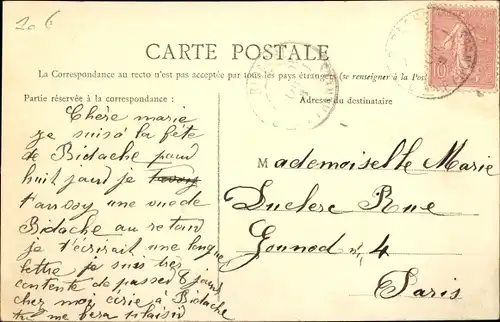 20 €
CARTE POSTALE
La Correspondance au recto n'est pas acceptée par tous les pays étrangers (se renseigner à la Poste
Partie réservée à la correspondance :
Adresse du destinataire
Chère marie
je suis à la fête
de Bidache pour
huit jour je
t'anvoy une vue de
Bidache au retour
je t'écrirait une longue
lettre je suis tres
contente de passer 8 jours
chez moi écrie a Bidache
tu me fera plaisir
Mademoiselle Marie
Duclerc Rue
Gounod nº 4
Paris
10